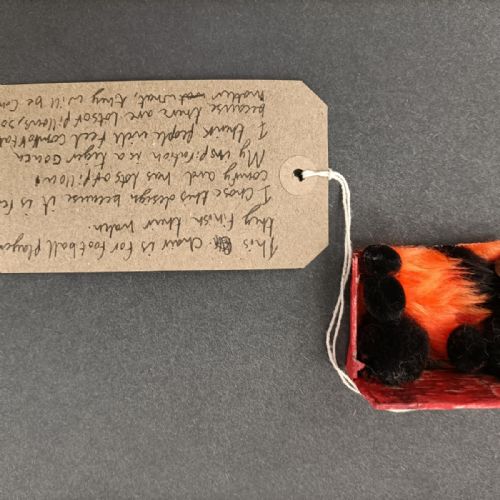 This chair is for football player
they finish their match.
I chose this design because it is
comfy and has lots of pillows
My inspiration is a
I think people will feel comfortab
because there are lots of pillows, so
what, they will be com